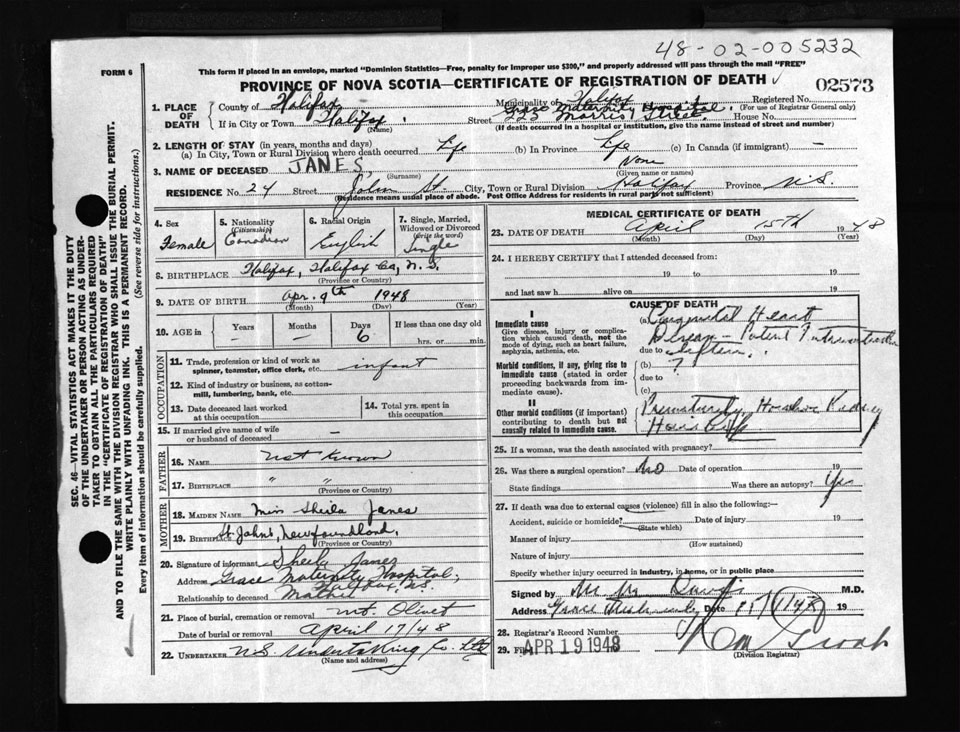 48-02-005232
FORM 6
This form if placed in an envelope, marked "Dominion Statistics—Free, penalty for improper use $300," and properly addressed will pass through the mail "FREE"
PROVINCE OF NOVA SCOTIA—CERTIFICATE OF REGISTRATION OF DEATH
02573
1. PLACE OF DEATH
County of Halifax
Municipality of Halifax Registered No.
(For use of Registrar General only)
Grace Maternity Hospital,
If in City or Town Halifax Street 225 Morris Street House No.
(Name) (If death occurred in a hospital or institution, give the name instead of street and number)
2. LENGTH OF STAY (in years, months and days)
(a) In City, Town or Rural Division where death occurred Life (b) In Province Life (c) In Canada (if immigrant) —
3. NAME OF DECEASED JANES, None
(Surname) (Given name or names)
RESIDENCE No. 24 Street John St. City, Town or Rural Division Halifax Province N.S.
(Residence means usual place of abode. Post Office Address for residents in rural parts not sufficient)
4. Sex Female
5. Nationality (Citizenship) Canadian
6. Racial Origin English
7. Single, Married, Widowed or Divorced (Write the word) Single
8. BIRTHPLACE Halifax, Halifax Co, N.S.
(Province or Country)
9. DATE OF BIRTH Apr. 9th 1948
(Month) (Day) (Year)
10. AGE in Years — Months — Days 6 If less than one day old hrs. or min.
OCCUPATION
11. Trade, profession or kind of work as spinner, teamster, office clerk, etc. infant
12. Kind of industry or business, as cotton-mill, lumbering, bank, etc.
13. Date deceased last worked at this occupation
14. Total yrs. spent in this occupation
15. If married give name of wife or husband of deceased —
FATHER
16. NAME Not known
17. BIRTHPLACE " "
(Province or Country)
MOTHER
18. MAIDEN NAME Miss Sheila Janes
19. BIRTHPLACE St. John's, Newfoundland,
(Province or Country)
20. Signature of informant Sheila Janes
Address Grace Maternity Hospital,
Halifax, N.S.
Relationship to deceased Mother
21. Place of burial, cremation or removal Mt. Olivet
Date of burial or removal April 17/48
22. UNDERTAKER N.S. Undertaking Co. Ltd
(Name and address)
MEDICAL CERTIFICATE OF DEATH
23. DATE OF DEATH April 15th 1948
(Month) (Day) (Year)
24. I HEREBY CERTIFY that I attended deceased from:
19 to 19
and last saw h alive on 19
CAUSE OF DEATH
I
Immediate cause
Give disease, injury or complication which caused death, not the mode of dying, such as heart failure, asphyxia, asthenia, etc.
(a) Congenital Heart
Disease - Patent
due to Septum.
Morbid conditions, if any, giving rise to immediate cause (stated in order proceeding backwards from immediate cause).
(b) ?
due to
(c)
II
Other morbid conditions (if important) contributing to death but not causally related to immediate cause.
Prematurity, Horshoe Kidney
25. If a woman, was the death associated with pregnancy?
26. Was there a surgical operation? No Date of operation 19
State findings Was there an autopsy? Yes
27. If death was due to external causes (violence) fill in also the following:—
Accident, suicide or homicide? Date of injury 19
(State which)
Manner of injury
(How sustained)
Nature of injury
Specify whether injury occurred in industry, in home, or in public place
Signed by M.D.
Address Grace Maternity Date 19
28. Registrar's Record Number
29. Filed APR 19 1948
(Division Registrar)
SEC. 46—VITAL STATISTICS ACT MAKES IT THE DUTY
OF THE UNDERTAKER OR PERSON ACTING AS UNDER-
TAKER TO OBTAIN ALL THE PARTICULARS REQUIRED
IN THE "CERTIFICATE OF REGISTRATION OF DEATH"
AND TO FILE THE SAME WITH THE DIVISION REGISTRAR WHO SHALL ISSUE THE BURIAL PERMIT.
WRITE PLAINLY WITH UNFADING INK. THIS IS A PERMANENT RECORD.
Every item of information should be carefully supplied. (See reverse side for instructions.)